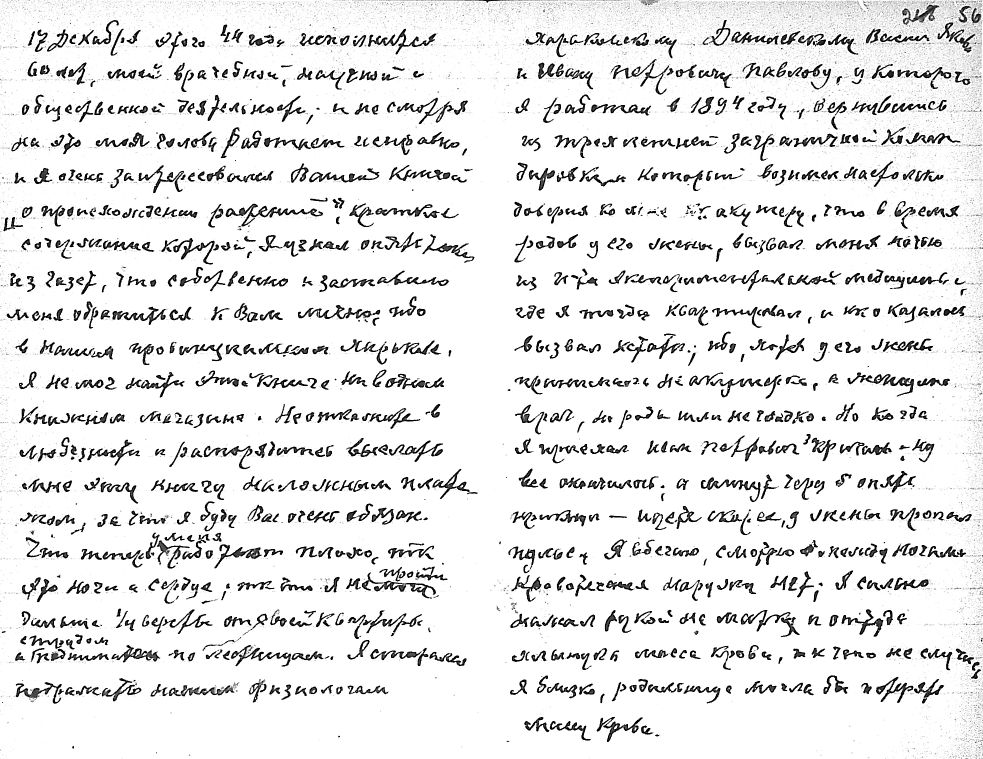 17 Декабря этого 44 года исполнится
60 лет, моей врачебной, научной и
общественной деятельности; и не смотря
на это моя голова работает исправно,
и я очень заинтересовался Вашей Книгой
„о происхождении растений", краткое
содержание которой, я узнал опять таки
из газет, что собственно и заставило
меня обратиться к Вам лично, ибо
в нашем провинциальном Харькове,
я не мог найти этой книги ни в одном
книжном магазине. Не откажите в
любезности и распорядитесь выслать
мне эту книгу наложным плате-
жом, за что я буду Вас очень обязан.
Что теперь у меня работает плохо, так
это ноги и сердце; так что я не пройти
дальше 1/4 версты от своей квартиры,
с трудом
по лестницам. Я старался
подражать нашим физиологам
218 56
харьковскому Данилевскому Васил Яковл
и Ивану Петровичу Павлову, у которого
я работал в 1894 году, вернувшись
из трехлетней заграничной коман
дировки, и который возимел настолько
доверия ко мне акушеру, что в время
родов у его жены, вызвал меня ночью
из И-та экспериментальной медицины,
где я тогда квартировал, и как оказалось
вызвал кстати; ибо, хотя у его жены
принимала не акушерка, а женщина
врач, но роды шли не гладко. Но когда
я приехал Иван Петрович кричит – ну
все окончилось; а минут через 5 опять
кричит — идите скорее, у жены пропал
пульс; я вбегаю, смотрю между ногами
кровотечения наружу нет; я сильно
нажал рукой на матку и оттуда
хлынула масса крови, так что не случись
я близко, родильница могла бы потерять
массу крови.